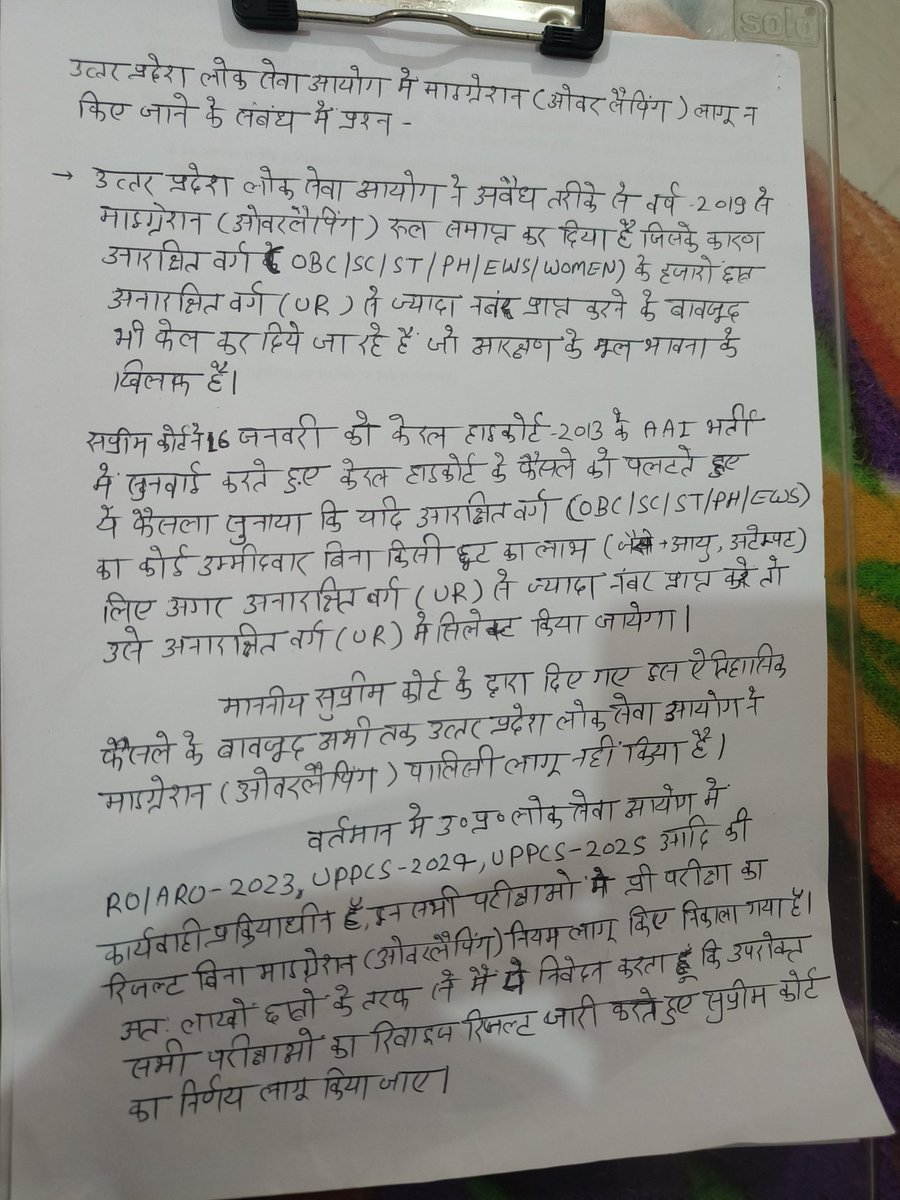 solo
उत्तर प्रदेश लोक सेवा आयोग में माइग्रेशन (ओवर लैपिंग) लागू न
किए जाने के संबंध में प्रश्न -
→ उत्तर प्रदेश लोक सेवा आयोग ने अवैध तरीके से वर्ष -2019 से
माइग्रेशन (ओवरलैपिंग) रूल समाप्त कर दिया है जिसके कारण
आरक्षित वर्ग (OBC/SC/ST/PH/EWS/WOMEN) के हजारो छात्र
अनारक्षित वर्ग (UR) से ज्यादा नंबर प्राप्त करने के बावजूद
भी फेल कर दिये जा रहे हैं जो आरक्षण के मूल भावना के
खिलाफ है।
सुप्रीम कोर्ट ने 16 जनवरी को केरल हाइकोर्ट-2013 के AAI भर्ती
में सुनवाई करते हुए केरल हाइकोर्ट के फैसले को पलटते हुए
ये फैसला सुनाया कि यदि आरक्षित वर्ग (OBC/SC/ST/PH/EWS)
का कोई उम्मीदवार बिना किसी छूट का लाभ (जैसे → आयु, अटेम्पट)
लिए अगर अनारक्षित वर्ग (UR) से ज्यादा नंबर प्राप्त करे तो
उसे अनारक्षित वर्ग (UR) में सिलेक्ट किया जायेगा।
माननीय सुप्रीम कोर्ट के द्वारा दिए गए इस ऐतिहासिक
फैसले के बावजूद अभी तक उत्तर प्रदेश लोक सेवा आयोग ने
माइग्रेशन (ओवरलैपिंग) पालिसी लागू नहीं किया है।
वर्तमान मे उ०प्र० लोक सेवा आयोग में
RO/ARO-2023, UPPCS-2024, UPPCS-2025 आदि की
कार्यवाही प्रक्रियाधीन है, इन सभी परीक्षाओ मे प्री परीक्षा का
रिजल्ट बिना माइग्रेशन (ओवरलैपिंग) नियम लागू किए निकाला गया है।
अतः लाखो छात्रो के तरफ से मै निवेदन करता हूं कि उपरोक्त
सभी परीक्षाओ का रिवाइज रिजल्ट जारी करते हुए सुप्रीम कोर्ट
का निर्णय लागू किया जाए।